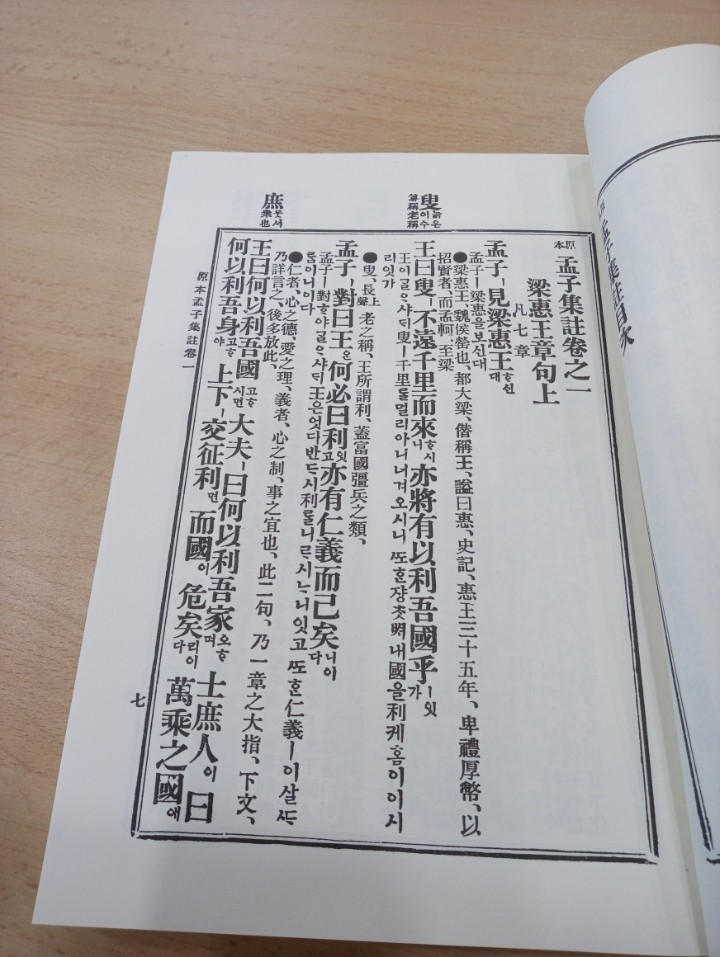 原本 孟子集註卷之一
梁惠王章句上
凡七章
孟子ㅣ見梁惠王ᄒᆞ신대
孟子ㅣ梁惠王을보신대
●梁惠王、魏侯罃也、都大梁、僭稱王、諡曰惠、史記、惠王三十五年、卑禮厚幣、以
招賢者、而孟軻、至梁
王曰叟ㅣ不遠千里而來ᄒᆞ시니亦將有以利吾國乎ㅣ잇가
王이ᄀᆞᆯᄋᆞ샤ᄃᆡ叟ㅣ千里ᄅᆞᆯ멀리아니너겨오시니ᄯᅩᄒᆞᆫ장ᄎᆞᆺᄡᅥ내國을利케홈이이시
리잇가
●叟、長上聲老之稱、王所謂利、蓋富國彊兵之類、
孟子ㅣ對曰王ᄋᆞᆫ何必曰利잇고亦有仁義而已矣니이다
孟子ㅣ對ᄒᆞ야ᄀᆞᆯᄋᆞ샤ᄃᆡ王은엇디반ᄃᆞ시利ᄅᆞᆯ니ᄅᆞ시ᄂᆞ니잇고ᄯᅩᄒᆞᆫ仁義ㅣ이실ᄯᆞ
ᄅᆞᆷ이니이다
●仁者、心之德、愛之理、義者、心之制、事之宜也、此二句、乃一章之大指、下文、
乃詳言之、後多放此、
王曰何以利吾國고ᄒᆞ시면大夫ㅣ曰何以利吾家오ᄒᆞ며士庶人이曰
何以利吾身고ᄒᆞ야上下ㅣ交征利면而國이危矣리이다萬乘之國애
叟 늙은이수 長老稱
庶 뭇셔 衆也
原本孟子集註卷一
七
孟子集註目次